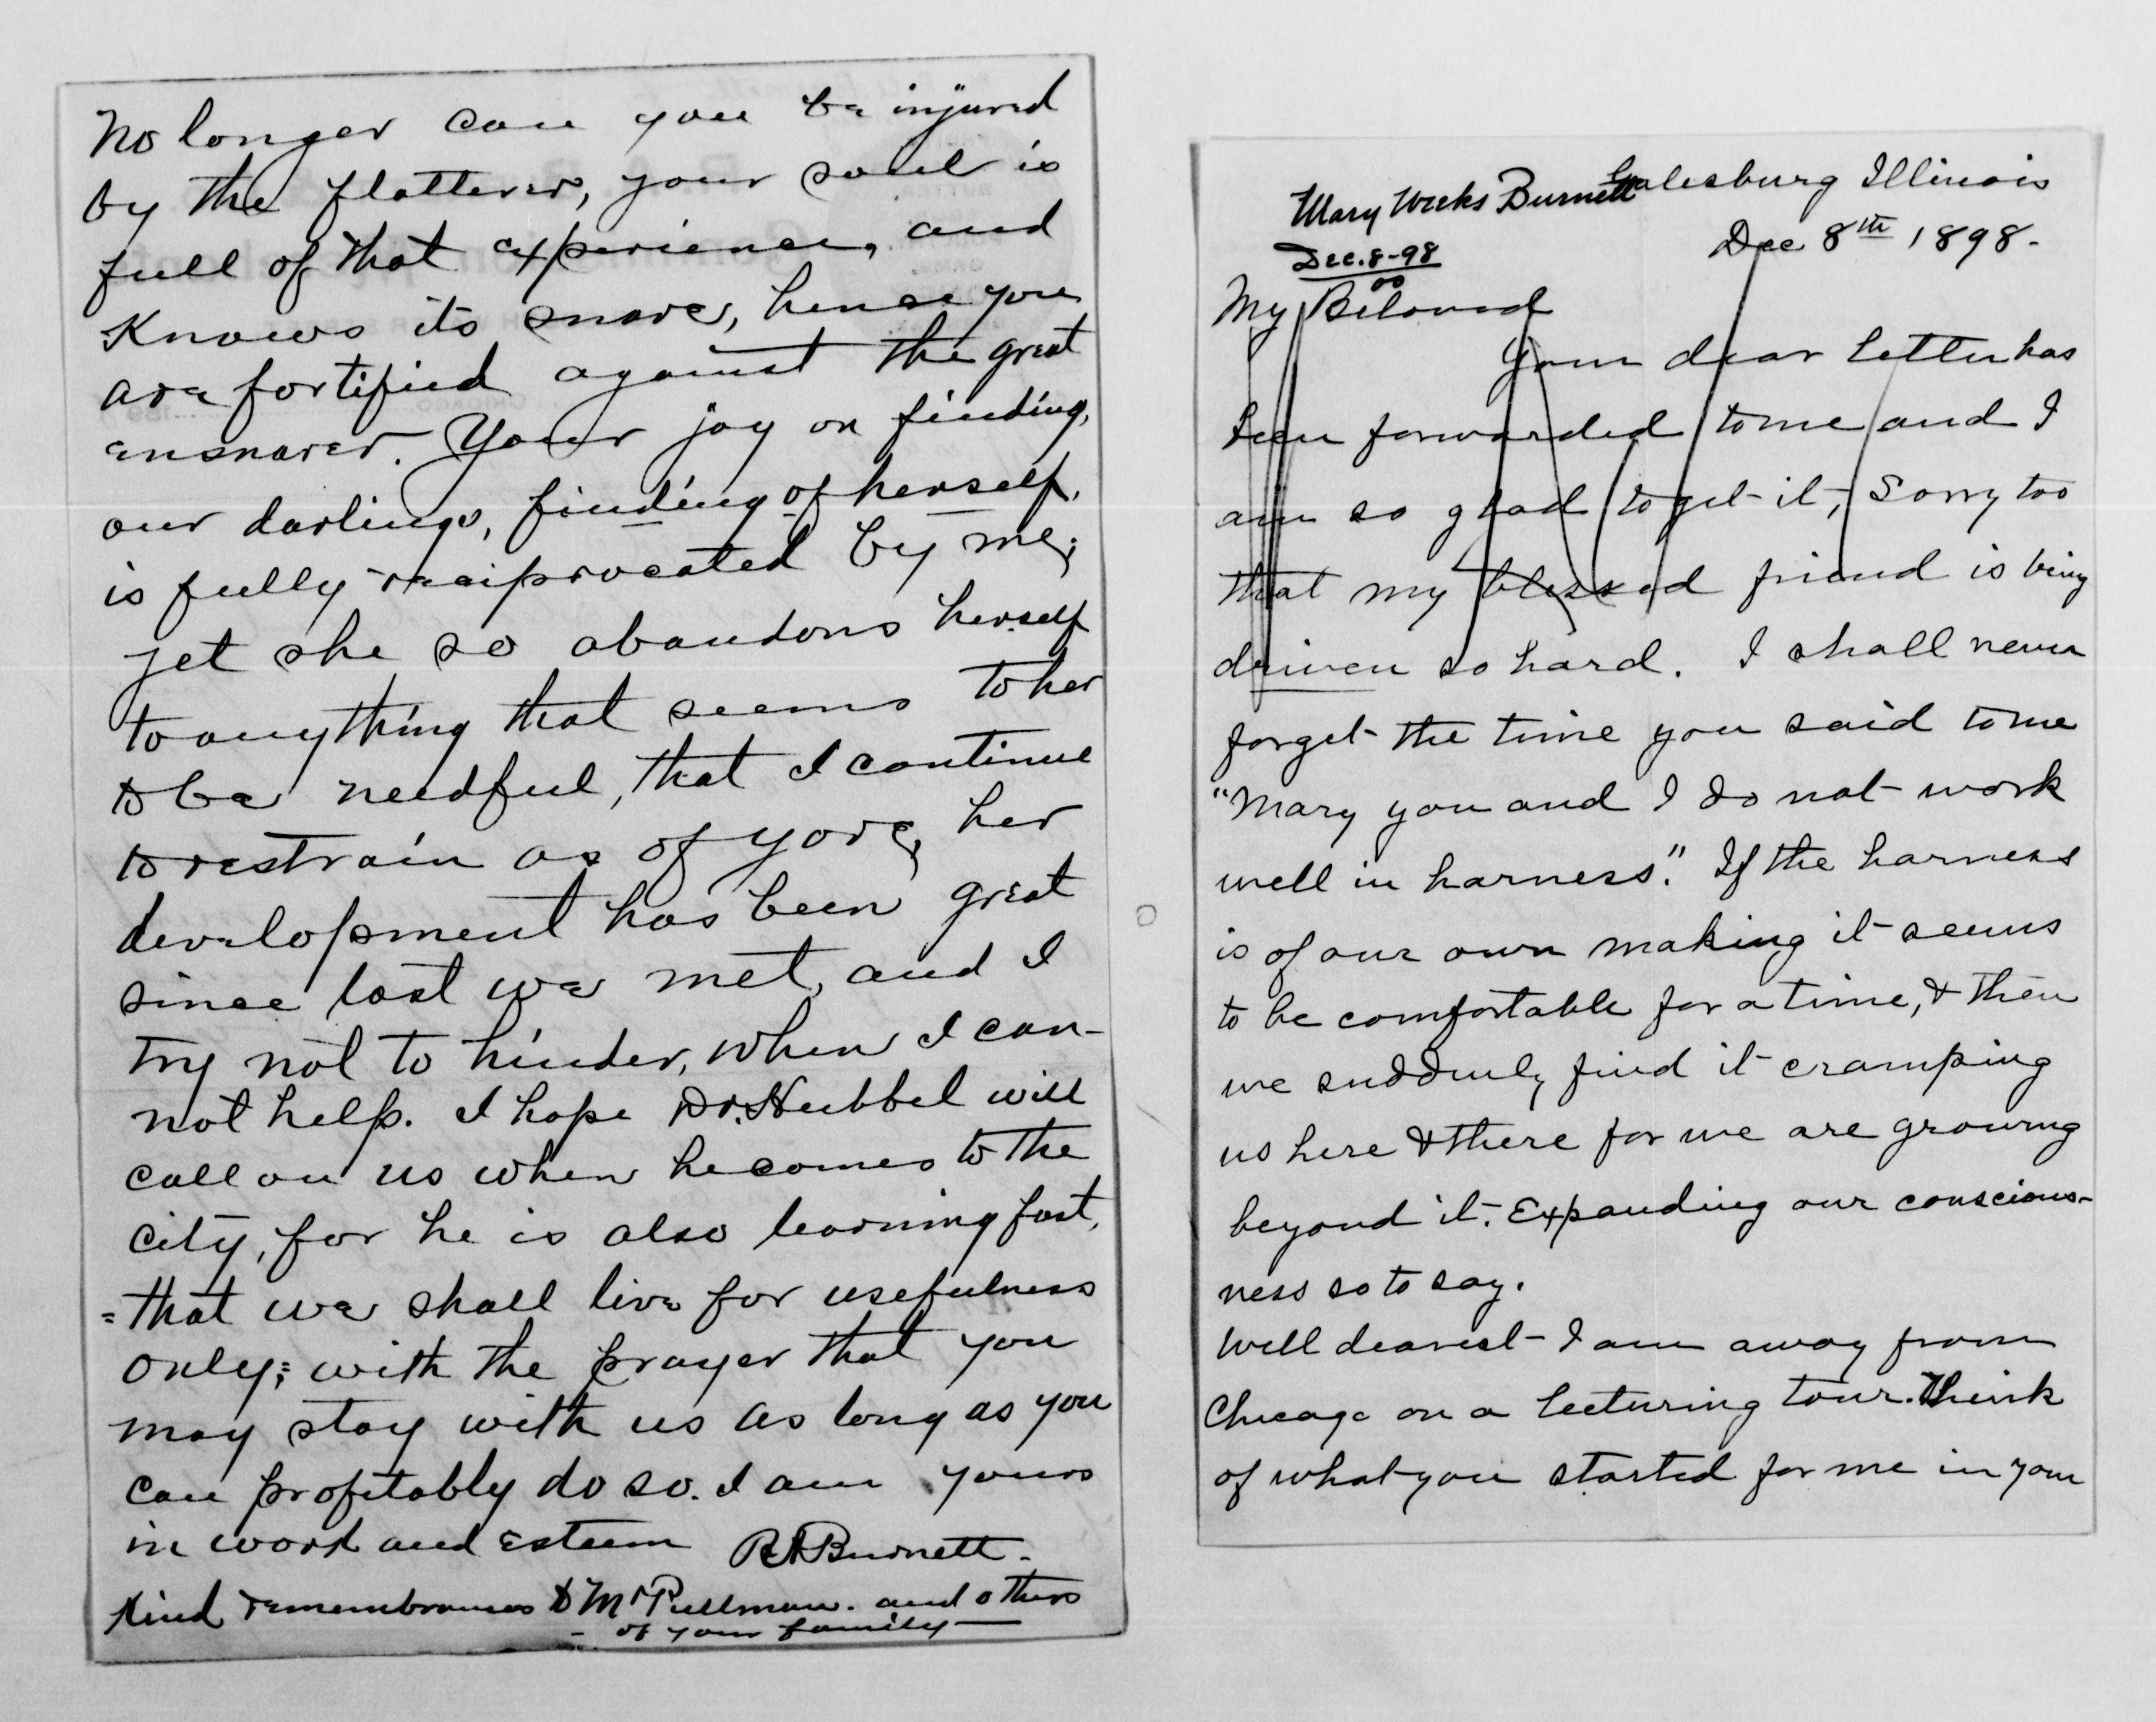 No longer can you be injured
by the flatterer, your soul is
full of that experience, and
Knows its snares, hence you
are fortified against the great
ensnarer. Your joy on finding,
our darlings, finding of herself,
is fully reciprocated by me;
yet she so abandons herself
to anything that seems to her
to be needful, that I continue
to restrain as of yore, her
development has been great
since last we met, and I
try not to hinder, when I can-
not help. I hope Dr. Hubbel will
call on us when he comes to the
city, for he is also learning fast,
=that we shall live for usefulness
only; with the prayer that you
may stay with us as long as you
can profitably do so. I am yours
in work and esteem R A Burnett.
Kind remembrances to Mr Pullman. and others
- of your family —
Mary Weeks Burnett
Dec. 8-98
Galesburg Illinois
Dec 8th 1898.
My Beloved
Your dear letter has
been forwarded to me and I
am so glad to get it, Sorry too
that my blessed friend is being
driven so hard. I shall never
forget the time you said to me
"Mary you and I do not work
well in harness." If the harness
is of our own making it seems
to be comfortable for a time, & then
we suddenly find it cramping
us here & there for we are growing
beyond it. Expanding our conscious-
ness so to say.
Well dearest I am away from
Chicago on a lecturing tour. Think
of what you started for me in your